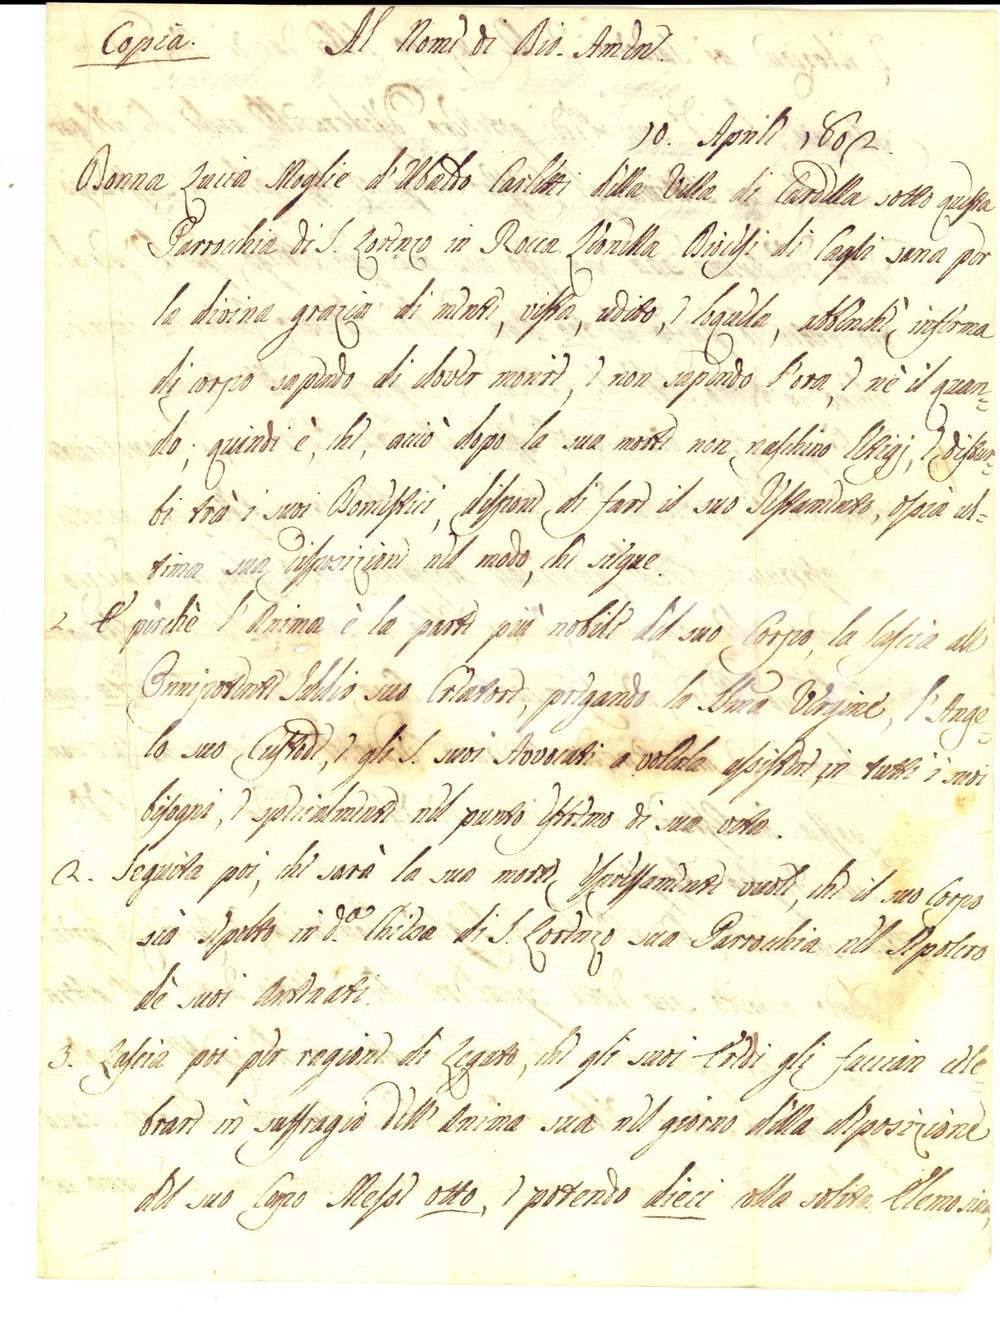 Copia. Al Nome di Dio. Amen.
10. Aprile 1802.
Donna Lucia Moglie d'Ubaldo Carletti della Villa di Cardella sotto questa
Parrochia di S. Lorenzo in Rocca Leonella Diocesi di Cagli sana per
la divina grazia di mente, vista, udito, e loquela, abbenchè inferma
di corpo sapendo di dover morire, e non sapendo l'ora, e nè il quan=
do, quindi è, che, acciò dopo la sua morte non naschino litigj, e distur=
bi trà i suoi Domestici, dispone di fare il suo Testamento, ossia ul=
tima sua disposizione nel modo, che siegue.
1. E perchè l'Anima è la parte più nobile del suo Corpo, la lascia all'
Onnipotente Iddio suo Creatore, pregando la Bma Vergine, l'Ange=
lo suo Custode, e gli S. suoi Avvocati a volerla assistere in tutti i suoi
bisogni, e specialmente nel punto estremo di sua vita.
2. Seguita poi, che sarà la sua morte espressamente vuole, che il suo Corpo
sia sepolto in d.a Chiesa di S. Lorenzo sua Parrochia nel Sepolcro
dè suoi Antenati.
3. Lascia poi per ragione di Legato, che gli suoi Eredi gli faccian cele=
brare in suffragio dell'Anima sua nel giorno della deposizione
del suo Corpo Messe otto, e potendo dieci colla solita Elemosina,